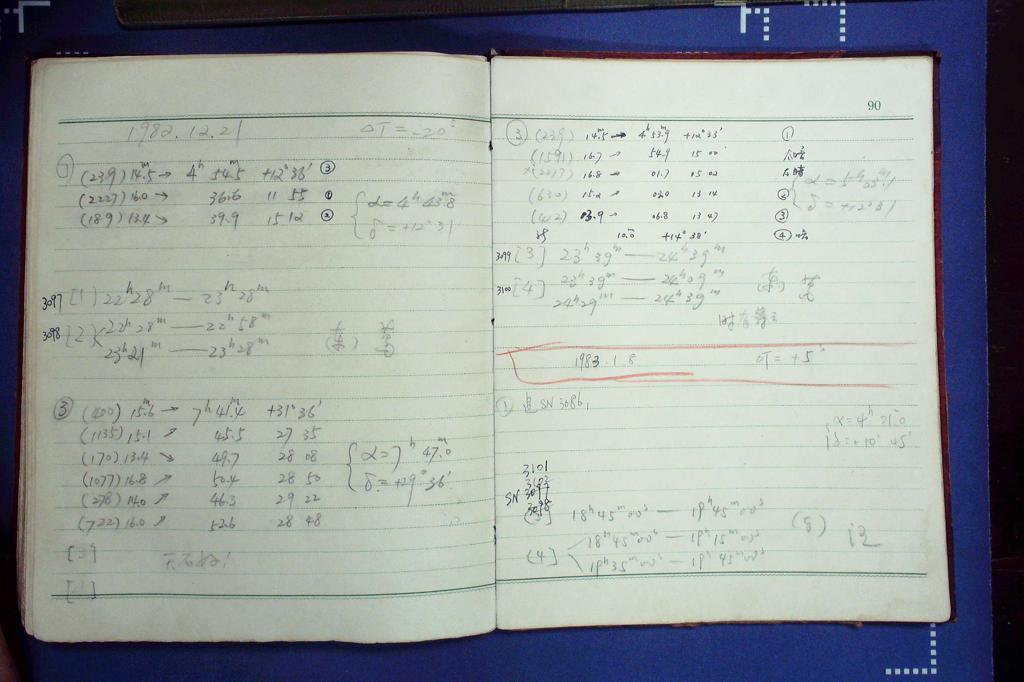 1982.12.21 ΔT=-20ˢ
① (239) 14.5ᵐ→ 4ʰ 54.5ᵐ +12°36′ ③
(2227) 16.0→ 36.6 11 55 ①
(189) 13.4↘ 39.9 15 12 ②
α=4ʰ 43.8ᵐ
δ=+12°31′
3097 [1] 22ʰ28ᵐ — 23ʰ28ᵐ
3098 [2] 22ʰ28ᵐ — 22ʰ58ᵐ
23ʰ21ᵐ — 23ʰ28ᵐ
③ (400) 15.6ᵐ→ 7ʰ 41.4ᵐ +31°36′
(1135) 15.1↗ 45.5 27 35
(170) 13.4↘ 49.7 28 08
(1077) 16.8↗ 50.4 28 50
(278) 14.0↗ 46.3 29 22
(722) 16.0↗ 52.6 28 48
α=7ʰ 47.0ᵐ
δ=+29°36′
[3]
[4]
90
③ (239) 14.5ᵐ→ 4ʰ 53.9ᵐ +12°33′ ①
(1591) 16.7→ 54.9 15 00
(2227) 16.8→ 01.7 15 02
(630) 15.2→ 03.0 13 14 ②
(412) 13.9→ 06.8 13 47 ③
10.0ᵐ +14°38′ ④
α=5ʰ 05.1ᵐ
δ=+12°31′
3099 [3] 23ʰ39ᵐ — 24ʰ39ᵐ
3100 [4] 23ʰ39ᵐ — 24ʰ09ᵐ
24ʰ29ᵐ — 24ʰ39ᵐ
1983.1.8 ΔT=+5ˢ
① SN 3086,
α=4ʰ 21.0ᵐ
δ=+10°45′
3101
3102
SN 3097
3098
[3] 18ʰ45ᵐ00ˢ — 19ʰ45ᵐ00ˢ
[4] 18ʰ45ᵐ00ˢ — 19ʰ15ᵐ00ˢ
19ʰ35ᵐ00ˢ — 19ʰ45ᵐ00ˢ